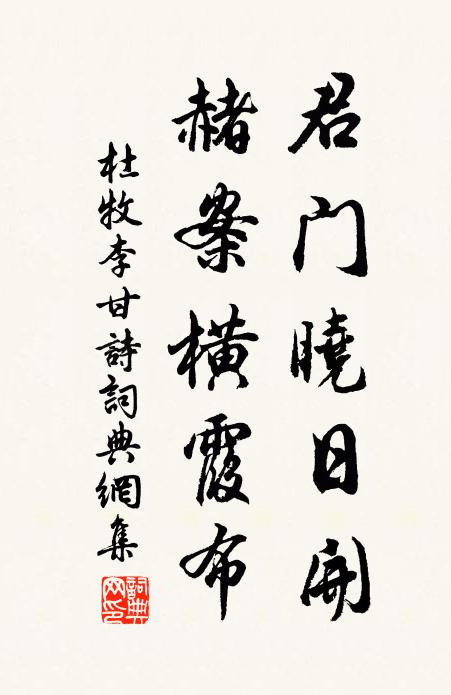 君门曉日開
赭案橫霞布
杜牧李甘詩詞典網集
詞典网印